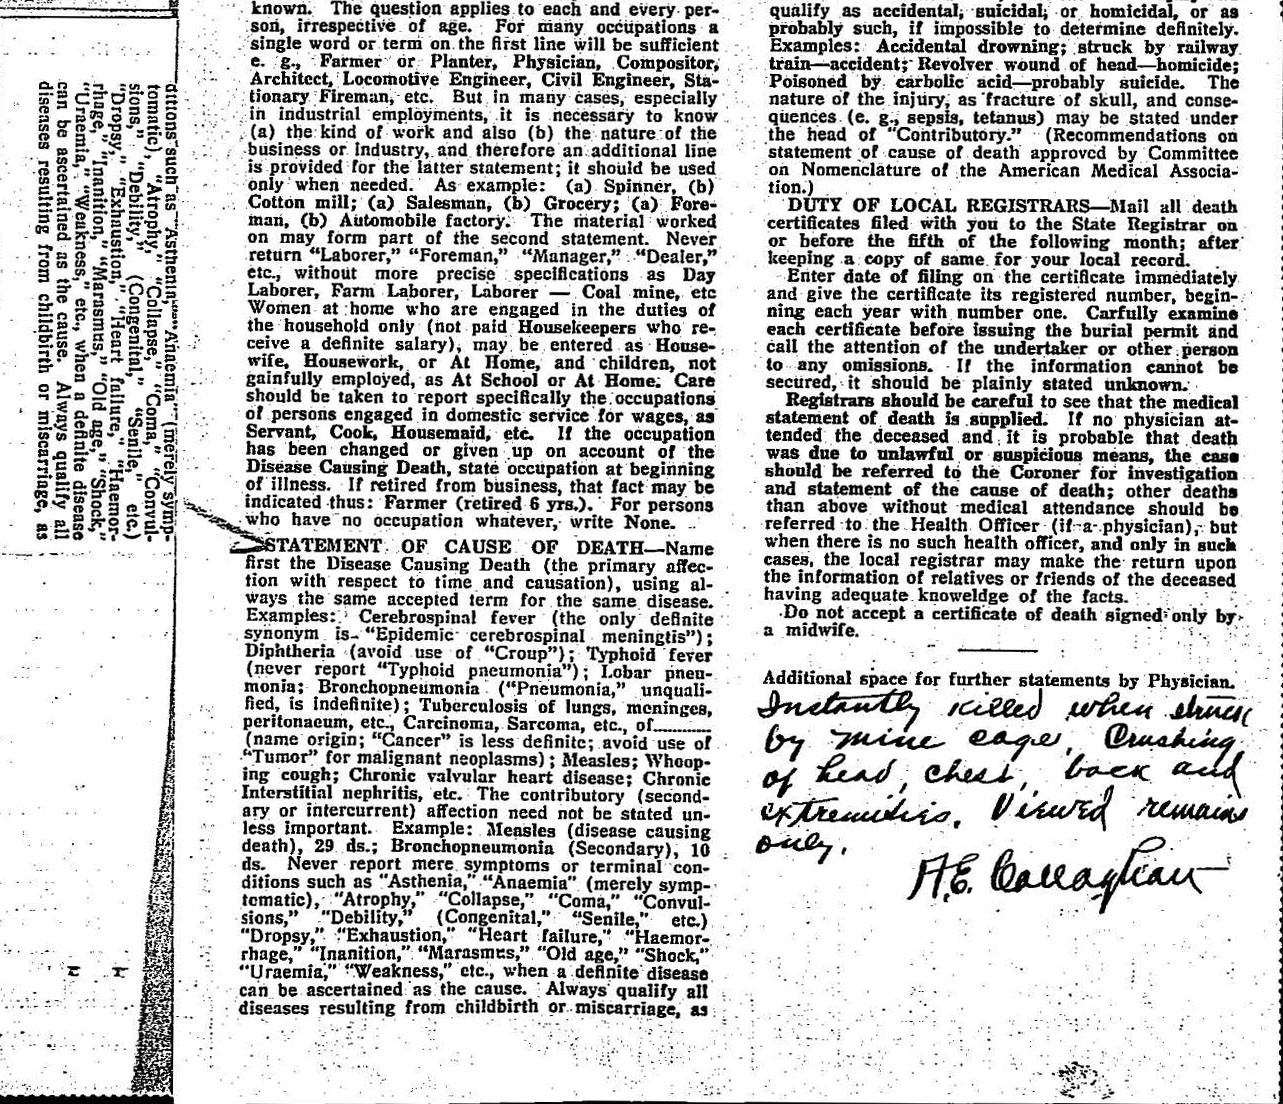 known. The question applies to each and every per-
son, irrespective of age. For many occupations a
single word or term on the first line will be sufficient
e. g., Farmer or Planter, Physician, Compositor,
Architect, Locomotive Engineer, Civil Engineer, Sta-
tionary Fireman, etc. But in many cases, especially
in industrial employments, it is necessary to know
(a) the kind of work and also (b) the nature of the
business or industry, and therefore an additional line
is provided for the latter statement; it should be used
only when needed. As example: (a) Spinner, (b)
Cotton mill; (a) Salesman, (b) Grocery; (a) Fore-
man, (b) Automobile factory. The material worked
on may form part of the second statement. Never
return "Laborer," "Foreman," "Manager," "Dealer,"
etc., without more precise specifications as Day
Laborer, Farm Laborer, Laborer — Coal mine, etc
Women at home who are engaged in the duties of
the household only (not paid Housekeepers who re-
ceive a definite salary), may be entered as House-
wife, Housework, or At Home, and children, not
gainfully employed, as At School or At Home. Care
should be taken to report specifically the occupations
of persons engaged in domestic service for wages, as
Servant, Cook, Housemaid, etc. If the occupation
has been changed or given up on account of the
Disease Causing Death, state occupation at beginning
of illness. If retired from business, that fact may be
indicated thus: Farmer (retired 6 yrs.). For persons
who have no occupation whatever, write None.
STATEMENT OF CAUSE OF DEATH—Name
first the Disease Causing Death (the primary affec-
tion with respect to time and causation), using al-
ways the same accepted term for the same disease.
Examples: Cerebrospinal fever (the only definite
synonym is "Epidemic cerebrospinal meningtis");
Diphtheria (avoid use of "Croup"); Typhoid fever
(never report "Typhoid pneumonia"); Lobar pneu-
monia; Bronchopneumonia ("Pneumonia," unquali-
fied, is indefinite); Tuberculosis of lungs, meninges,
peritonaeum, etc., Carcinoma, Sarcoma, etc., of..........
(name origin; "Cancer" is less definite; avoid use of
"Tumor" for malignant neoplasms); Measles; Whoop-
ing cough; Chronic valvular heart disease; Chronic
Interstitial nephritis, etc. The contributory (second-
ary or intercurrent) affection need not be stated un-
less important. Example: Measles (disease causing
death), 29 ds.; Bronchopneumonia (Secondary), 10
ds. Never report mere symptoms or terminal con-
ditions such as "Asthenia," "Anaemia" (merely symp-
tcmatic), "Atrophy," "Collapse," "Coma," "Convul-
sions," "Debility," (Congenital," "Senile," etc.)
"Dropsy," "Exhaustion," "Heart failure," "Haemor-
rhage," "Inanition," "Marasmes," "Old age," "Shock,"
"Uraemia," "Weakness," etc., when a definite disease
can be ascertained as the cause. Always qualify all
diseases resulting from childbirth or miscarriage, as
qualify as accidental, suicidal, or homicidal, or as
probably such, if impossible to determine definitely.
Examples: Accidental drowning; struck by railway
train—accident; Revolver wound of head—homicide;
Poisoned by carbolic acid—probably suicide. The
nature of the injury, as fracture of skull, and conse-
quences (e. g., sepsis, tetanus) may be stated under
the head of "Contributory." (Recommendations on
statement of cause of death approved by Committee
on Nomenclature of the American Medical Associa-
tion.)
DUTY OF LOCAL REGISTRARS—Mail all death
certificates filed with you to the State Registrar on
or before the fifth of the following month; after
keeping a copy of same for your local record.
Enter date of filing on the certificate immediately
and give the certificate its registered number, begin-
ning each year with number one. Carfully examine
each certificate before issuing the burial permit and
call the attention of the undertaker or other person
to any omissions. If the information cannot be
secured, it should be plainly stated unknown.
Registrars should be careful to see that the medical
statement of death is supplied. If no physician at-
tended the deceased and it is probable that death
was due to unlawful or suspicious means, the case
should be referred to the Coroner for investigation
and statement of the cause of death; other deaths
than above without medical attendance should be
referred to the Health Officer (if a physician), but
when there is no such health officer, and only in such
cases, the local registrar may make the return upon
the information of relatives or friends of the deceased
having adequate knoweldge of the facts.
Do not accept a certificate of death signed only by
a midwife.
Additional space for further statements by Physician.
Instantly killed when struck
by mine cage. Crushing
of head, chest, back and
extremities. Viewed remains
only.
A.E. Callaghan
ditions such as "Asthenia," "Anaemia" (merely symp-
tomatic), "Atrophy," "Collapse," "Coma," "Convul-
sions," "Debility," (Congenital," "Senile," etc.)
"Dropsy," "Exhaustion," "Heart failure," "Haemor-
rhage," "Inanition," "Marasmus," "Old age," "Shock,"
"Uraemia," "Weakness," etc., when a definite disease
can be ascertained as the cause. Always qualify all
diseases resulting from childbirth or miscarriage, as